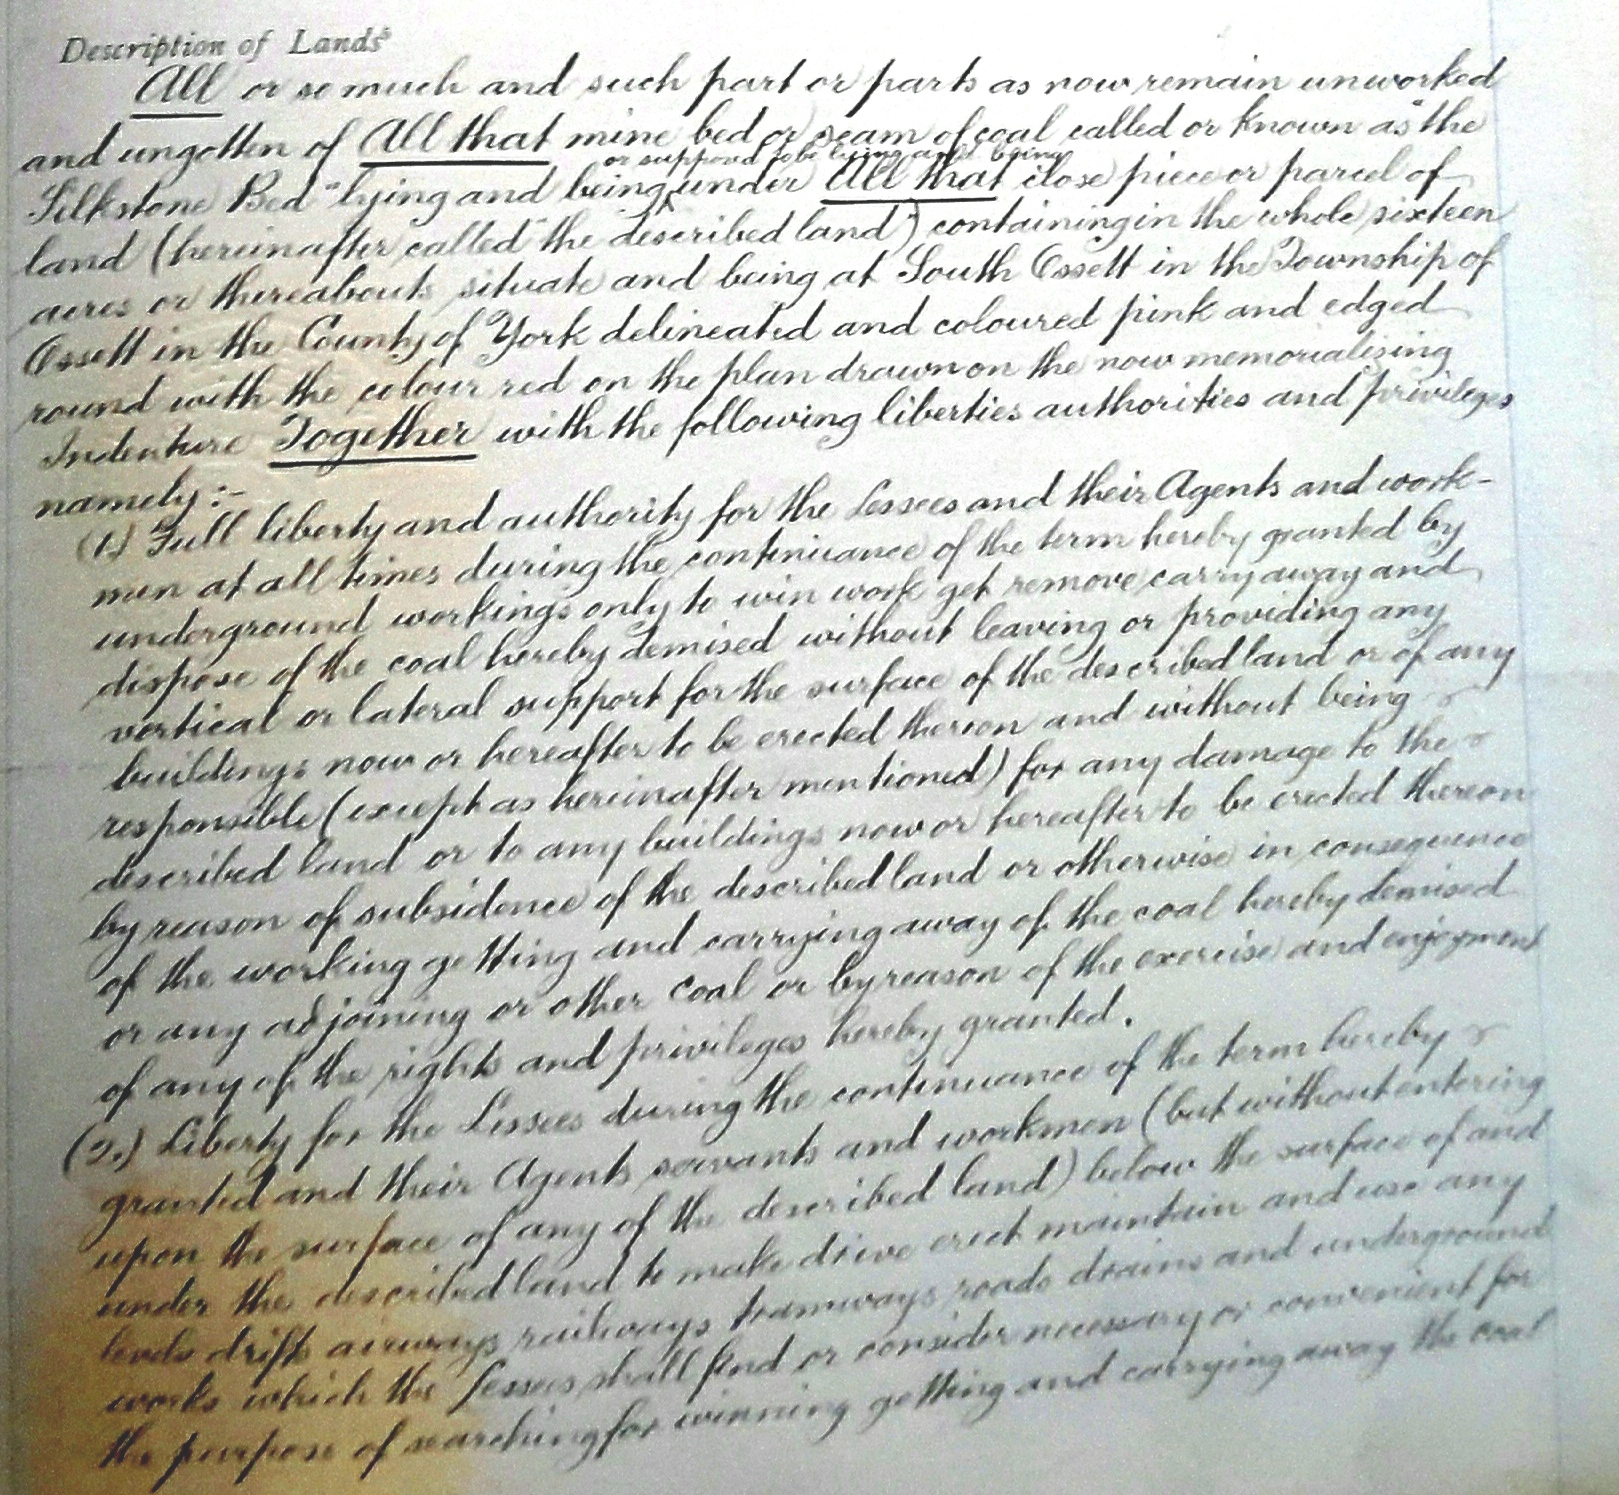 Description of Lands
All or so much and such part or parts as now remain unworked
and ungotten of All that mine bed or seam of coal called or known as "the
or supposed to be lying and being
Silkstone Bed" lying and being under All that close piece or parcel of
land (hereinafter called "the described land") containing in the whole sixteen
acres or thereabouts situate and being at South Ossett in the Township of
Ossett in the County of York delineated and coloured pink and edged
round with the colour red on the plan drawn on the now memorialising
Indenture Together with the following liberties authorities and privileges
namely:-
(1.) Full liberty and authority for the Lessees and their Agents and work-
men at all times during the continuance of the term hereby granted by
underground workings only to win work get remove carry away and
dispose of the coal hereby demised without leaving or providing any
vertical or lateral support for the surface of the described land or of any
buildings now or hereafter to be erected thereon and without being
responsible (except as hereinafter mentioned) for any damage to the
described land or to any buildings now or hereafter to be erected thereon
by reason of subsidence of the described land or otherwise in consequence
of the working getting and carrying away of the coal hereby demised
or any adjoining or other coal or by reason of the exercise and enjoyment
of any of the rights and privileges hereby granted.
(2.) Liberty for the Lessees during the continuance of the term hereby
granted and their Agents servants and workmen (but without entering
upon the surface of any of the described land) below the surface of and
under the described land to make drive erect maintain and use any
levels drifts airways railways tramways roads drains and underground
works which the Lessees shall find or consider necessary or convenient for
the purpose of searching for winning getting and carrying away the coal